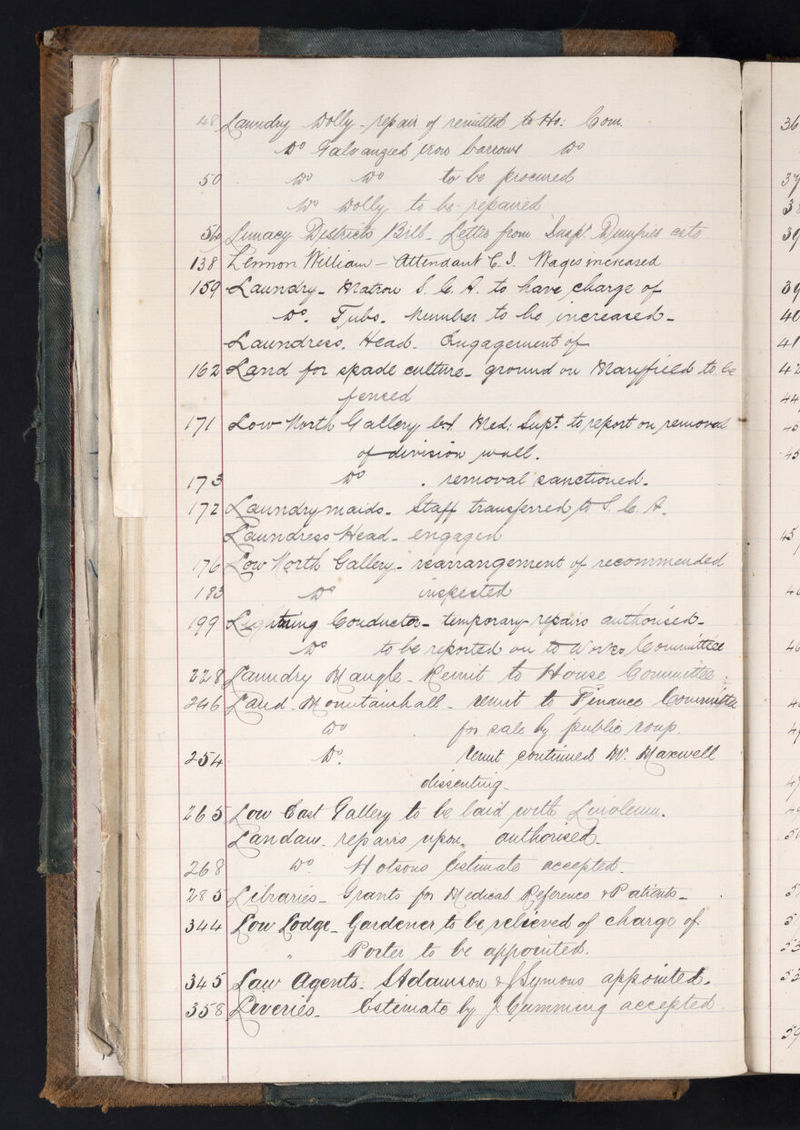 48 Laundry Dolly - repair of remitted to Ho: Com.
Do Galvanized Iron barrows Do
50 Do Do to be procured
Do Dolly to be repaired
54 Lunacy Districts Bill - Letter from Inspr Dumfries
138 Lennon William - Attendant C.I. Wages increased
159 Laundry - Matron S.C.A. to have charge of
Do. Tubs. Number to be increased -
Laundress. Head. Engagement of
162 Land for spade culture - ground on Maryfield to be
fenced
171 Low North Gallery Med: Supt. to report on removal
of division wall.
173 Do . removal sanctioned.
172 Laundrymaids - Staff transferred to S.C.A.
Laundress Head - engaged
176 Low North Gallery - rearrangement of recommended
183 Do inspected
199 Lightning Conductor - temporary repairs authorised -
Do to be reported on to Works Committee
228 Laundry Mangle - Remit to House Committee
246 Land - Mountainhall - remit to Finance Committee
Do for sale by public roup.
254 Do. Remit continued Mr. Maxwell
dissenting -
265 Low East Gallery to be laid with Linoleum.
Landau - repairs upon authorised -
268 Do. Hotsons Estimate accepted.
285 Libraries - Grants for Medical Reference & Patients -
344 Low Lodge - Gardener to be relieved of charge of
" Porter to be appointed.
345 Law Agents - S Adamson & J Symons appointed.
358 Liveries - Estimate by J. Cumming accepted
36
37
3
39
39
40
41
42
44
45
45
45